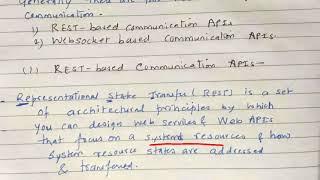 Generally
Communication.
1) REST-based Communication APIs
2) Websocket based Communication APIs.
(1) REST-based Communication APIs-
Representational State Transfer (REST) is a set
of architectural principles by which
you can design web services & Web APIs
that focus on a system's resources & how
system resource states are addressed
& transferred.